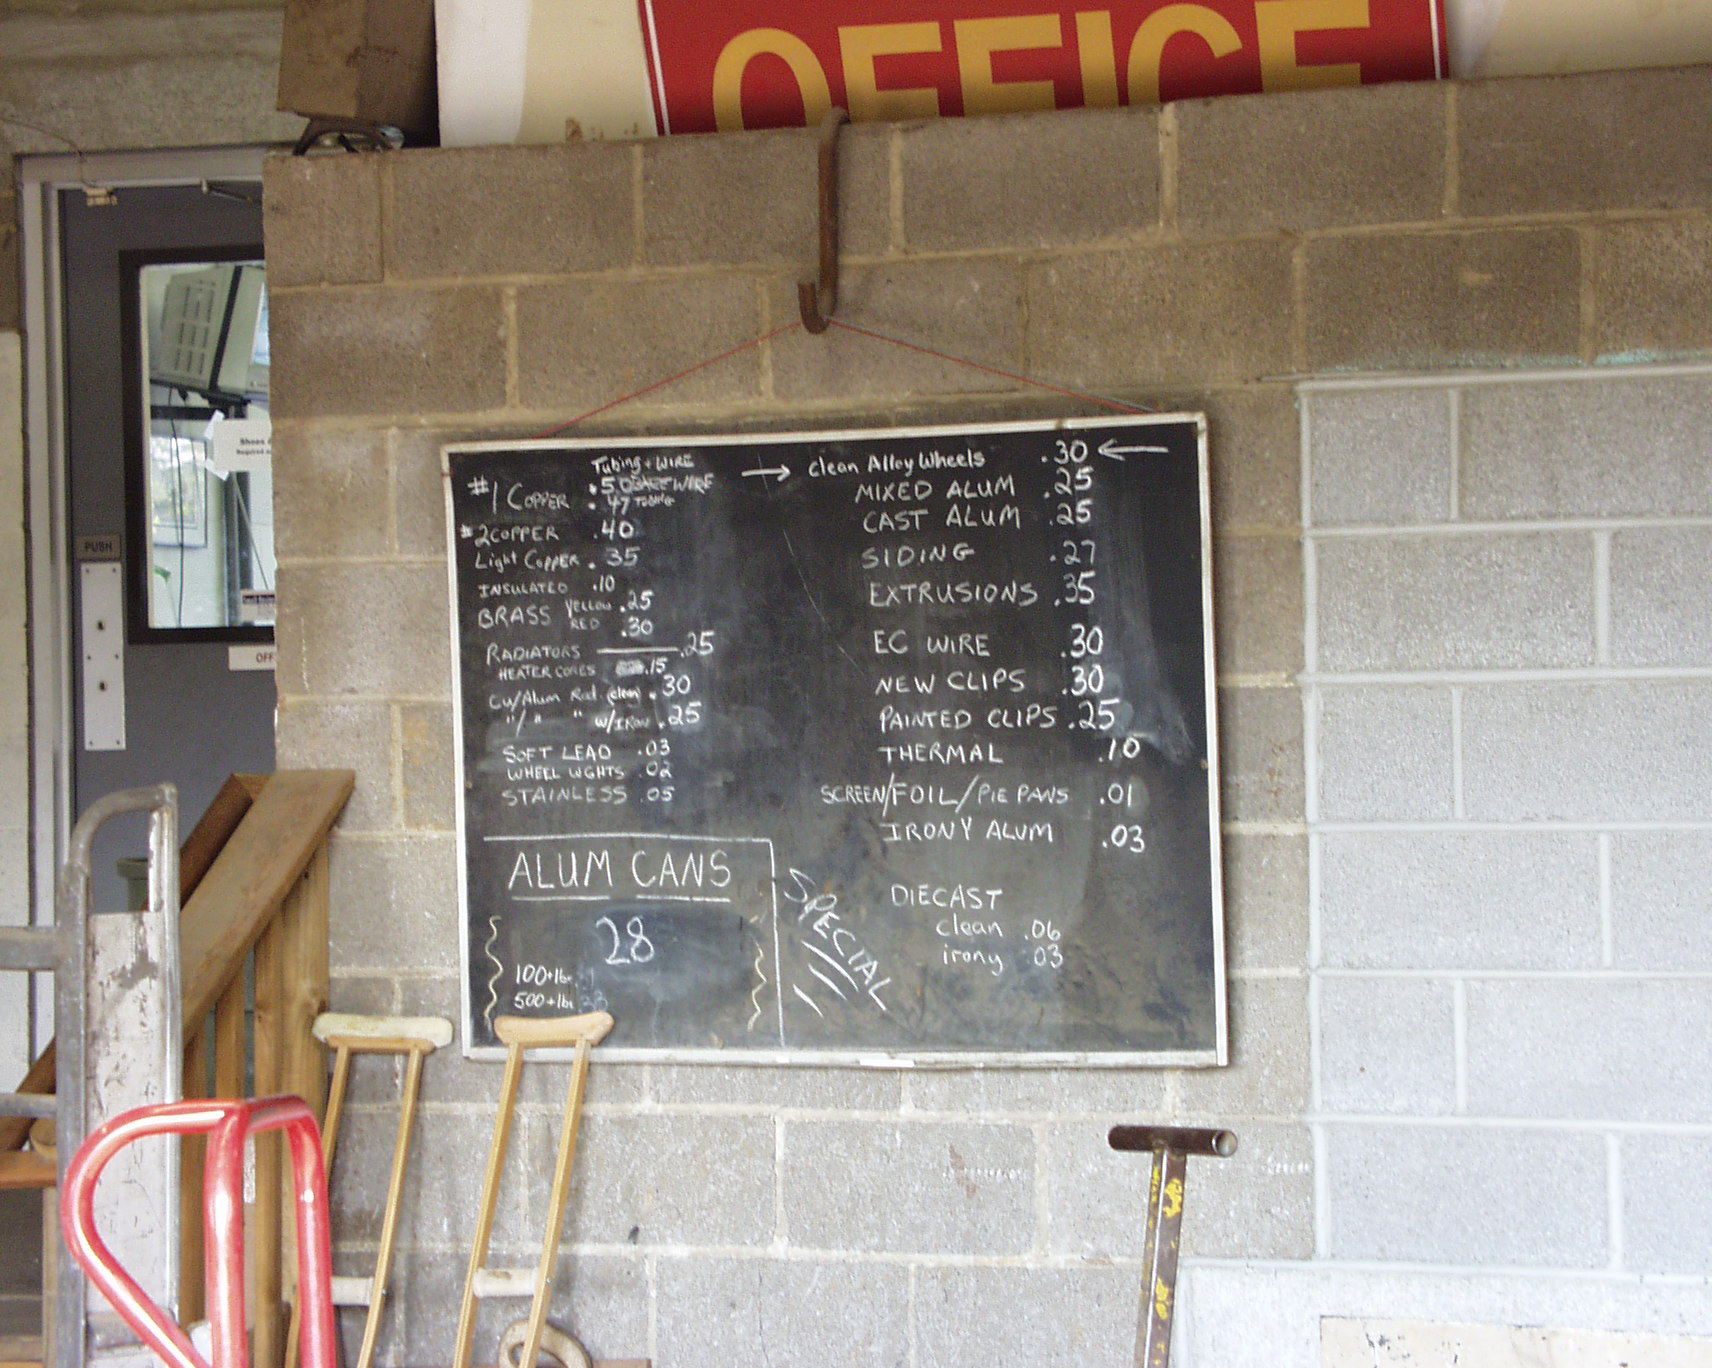 OFFICE
PUSH
Shoes
Required
OFF
Tubing + WIRE
#1 COPPER .50 WIRE
.47 TUBING
#2 COPPER .40
Light COPPER .35
INSULATED .10
BRASS YELLOW .25
RED .30
RADIATORS .25
HEATER CORES .15
Cu/Alum Rad (clean) .30
"/" " W/IRON .25
SOFT LEAD .03
WHEEL WGHTS .02
STAINLESS .05
ALUM CANS
28
100+lbs
500+lbs
SPECIAL
→ clean Alloy Wheels .30 ←
MIXED ALUM .25
CAST ALUM .25
SIDING .27
EXTRUSIONS .35
EC WIRE .30
NEW CLIPS .30
PAINTED CLIPS .25
THERMAL .10
SCREEN/FOIL/PIE PANS .01
IRONY ALUM .03
DIECAST
clean .06
irony .03